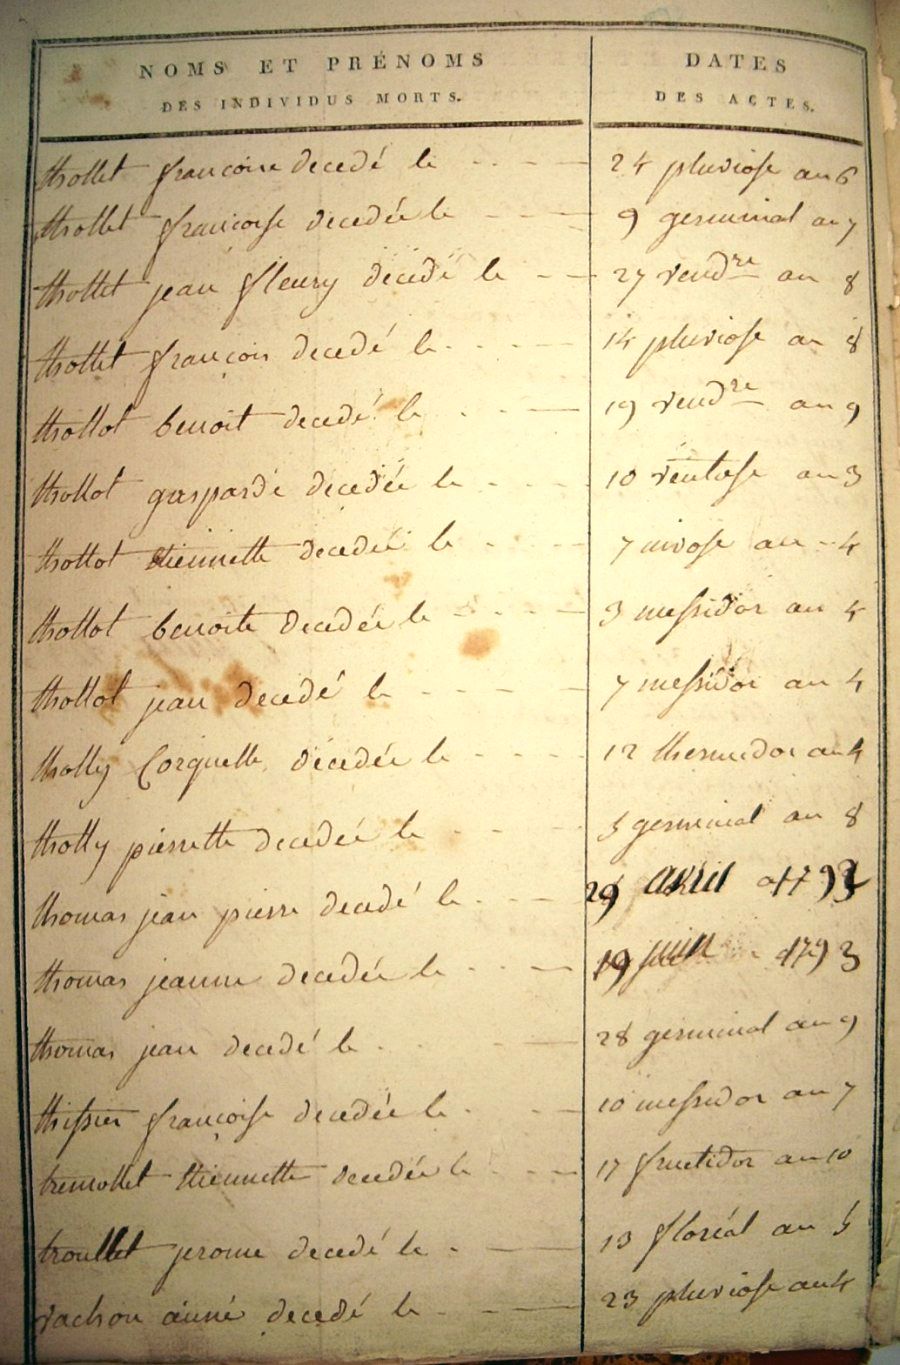 NOMS ET PRÉNOMS DATES
DES INDIVIDUS MORTS. DES ACTES.
thollet francoise decedé le 24 pluviose an 6
thollet françoise decedée le 9 germinal an 7
thollet jean fleury decedé le 27 vendre an 8
thollet françois decedé le 14 pluviose an 8
thollot benoit decedé le 19 vendre an 9
thollot gasparde decedée le 10 ventose an 3
thollot etiennette decedée le 7 nivose an 4
thollot benoite decedée le 3 messidor an 4
thollot jean decedé le 7 messidor an 4
tholly decedée le 12 thermidor an 4
tholly pierrette decedée le 5 germinal an 8
thomas jean pierre decedé le 29 avril 1793
thomas jeanne decedée le 19 juin 1793
thomas jean decedé le 28 germinal an 9
françoise decedée le 10 messidor an 7
tremollet etiennette decedée le 17 fructidor an 10
troullet jerome decedé le 13 floréal an 5
vachon aimé decedé le 23 pluviose an 4